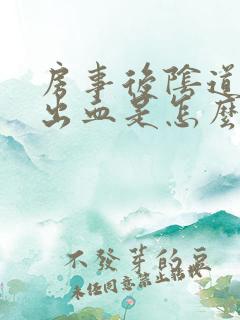 房事後陰道
出血是怎麼
不發芽的豆
未經同意禁止轉載